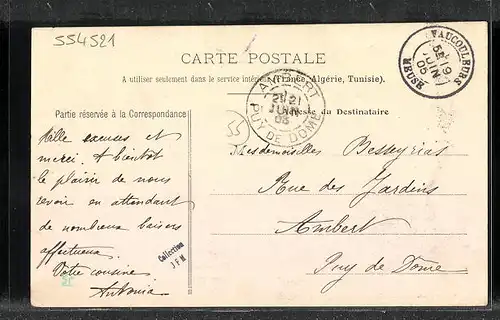 554521
CARTE POSTALE
A utiliser seulement dans le service intérieur (France, Algérie, Tunisie).
VAUCOULEURS
19
JUIN
05
MEUSE
AMBERT
21
JUIN
PUY DE DOME
Partie réservée à la Correspondance
Adresse du Destinataire
55
Mille excuses et
merci. A bientôt
le plaisir de nous
revoir en attendant
de nombreux baisers
affectueux.
Votre cousine
Antonia
Collection
J F M
Mesdemoiselles Besseyrias
Rue des Jardins
Ambert
Puy de Dome